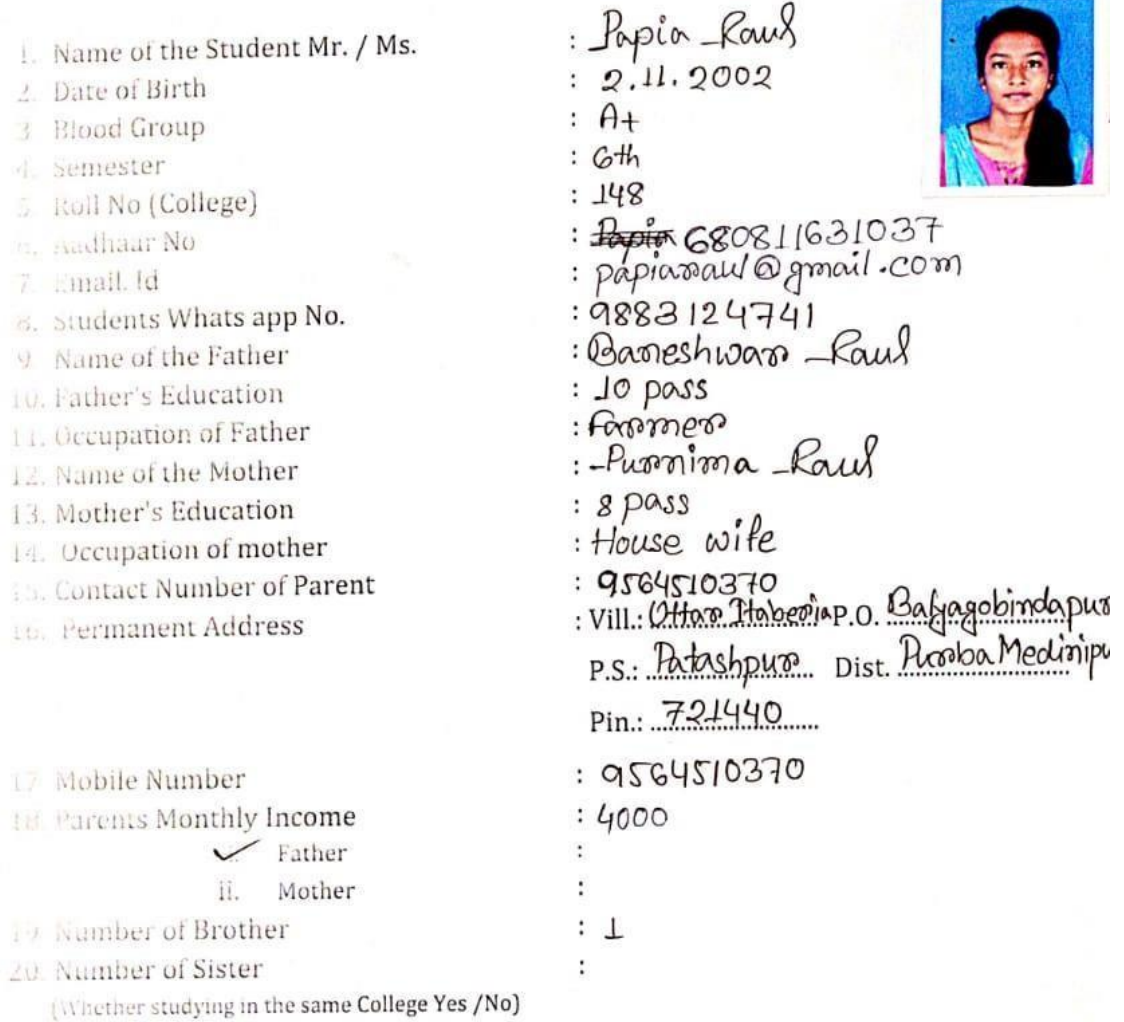 1. Name of the Student Mr. / Ms. : Papia Raul
2. Date of Birth : 2.11.2002
3. Blood Group : A+
4. Semester : 6th
5. Roll No (College) : 148
6. Aadhaar No : Papia 680811631037
7. Email. Id : papiaraul@gmail.com
8. Students Whats app No. : 9883124741
9. Name of the Father : Bareshwar Raul
10. Father's Education : 10 pass
11. Occupation of Father : Farmer
12. Name of the Mother : Purnima Raul
13. Mother's Education : 8 pass
14. Occupation of mother : House wife
15. Contact Number of Parent : 9564510370
16. Permanent Address : Vill.: Uttar Itaberia P.O. Balyagobindapur
P.S.: Patashpur Dist. Purba Medinipu
Pin.: 721440
17. Mobile Number : 9564510370
18. Parents Monthly Income : 4000
Father :
ii. Mother :
19. Number of Brother : 1
20. Number of Sister :
(Whether studying in the same College Yes /No)